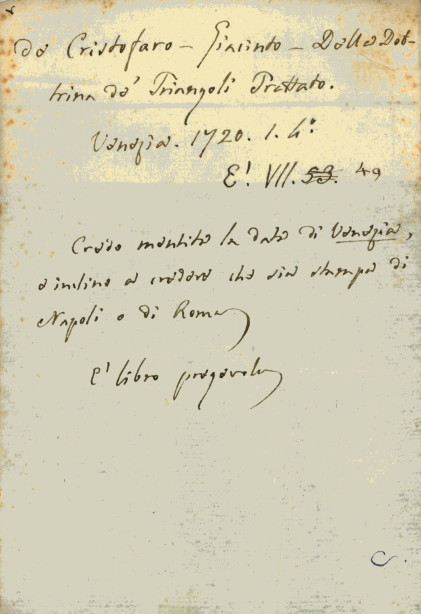 De Cristofaro - Giacinto - Della Dot-
trina de' Triangoli Trattato.
Venezia. 1720. 1. 4°.
E'. VII. 53. 49
Credo mentita la data di Venezia,
e inclino a credere che sia stampa di
Napoli o di Roma
E' libro pregevole